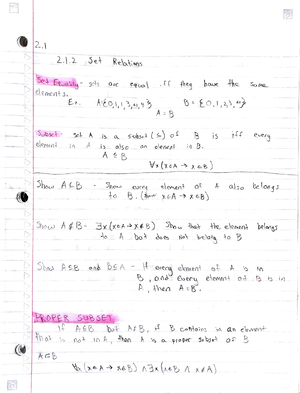 2.1
2.1.2 Set Relations
Set Equality - sets are equal iff they have the same
elements.
Ex. A{0,1,1,3,4,4} B = {0,1,2,3,4}
A = B
Subset set A is a subset (⊆) of B is iff every
element in A is also an element in B.
A ⊆ B
∀x (x∈A → x∈B)
Show A⊆B - Show every element of A also belongs
to B. (x∈A → x∈B)
Show A⊈B - ∃x (x∈A → x∉B) Show that the element belongs
to A but does not belong to B
Show A⊆B and B⊆A - If every element of A is in
B, and every element of B is in
A, then A=B.
PROPER SUBSET
If A⊆B but A≠B, if B contains in an element
that is not in A, then A is a proper subset of B
A⊂B
∀x (x∈A → x∈B) ∧ ∃x (x∈B ∧ x∉A)